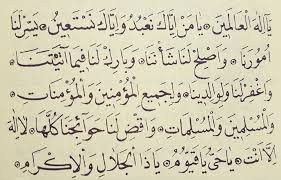 يَاإِلٰهَ الْعَالَمِينَ ۞ يَا مَنْ إِيَّاكَ نَعْبُدُ وَإِيَّاكَ نَسْتَعِينُ ۞ يَسِّرْ لَنَا
أُمُورَنَا ۞ وَاصْلِحْ لَنَا شَأْنَنَا ۞ وَبَارِكْ لَنَا فِيمَا آتَيْتَنَا ۞
وَاغْفِرْ لَنَا وَلِوَالِدِينَا ۞ وَلِجَمِيعِ الْمُؤْمِنِينَ وَالْمُؤْمِنَاتِ ۞
وَالْمُسْلِمِينَ وَالْمُسْلِمَاتِ ۞ وَاقْضِ لَنَا حَوَائِجَنَا كُلَّهَا ۞ لَا إِلٰهَ
إِلَّا أَنْتَ ۞ يَا حَيُّ يَا قَيُّومُ ۞ يَا ذَا الْجَلَالِ وَالْإِكْرَامِ ۞